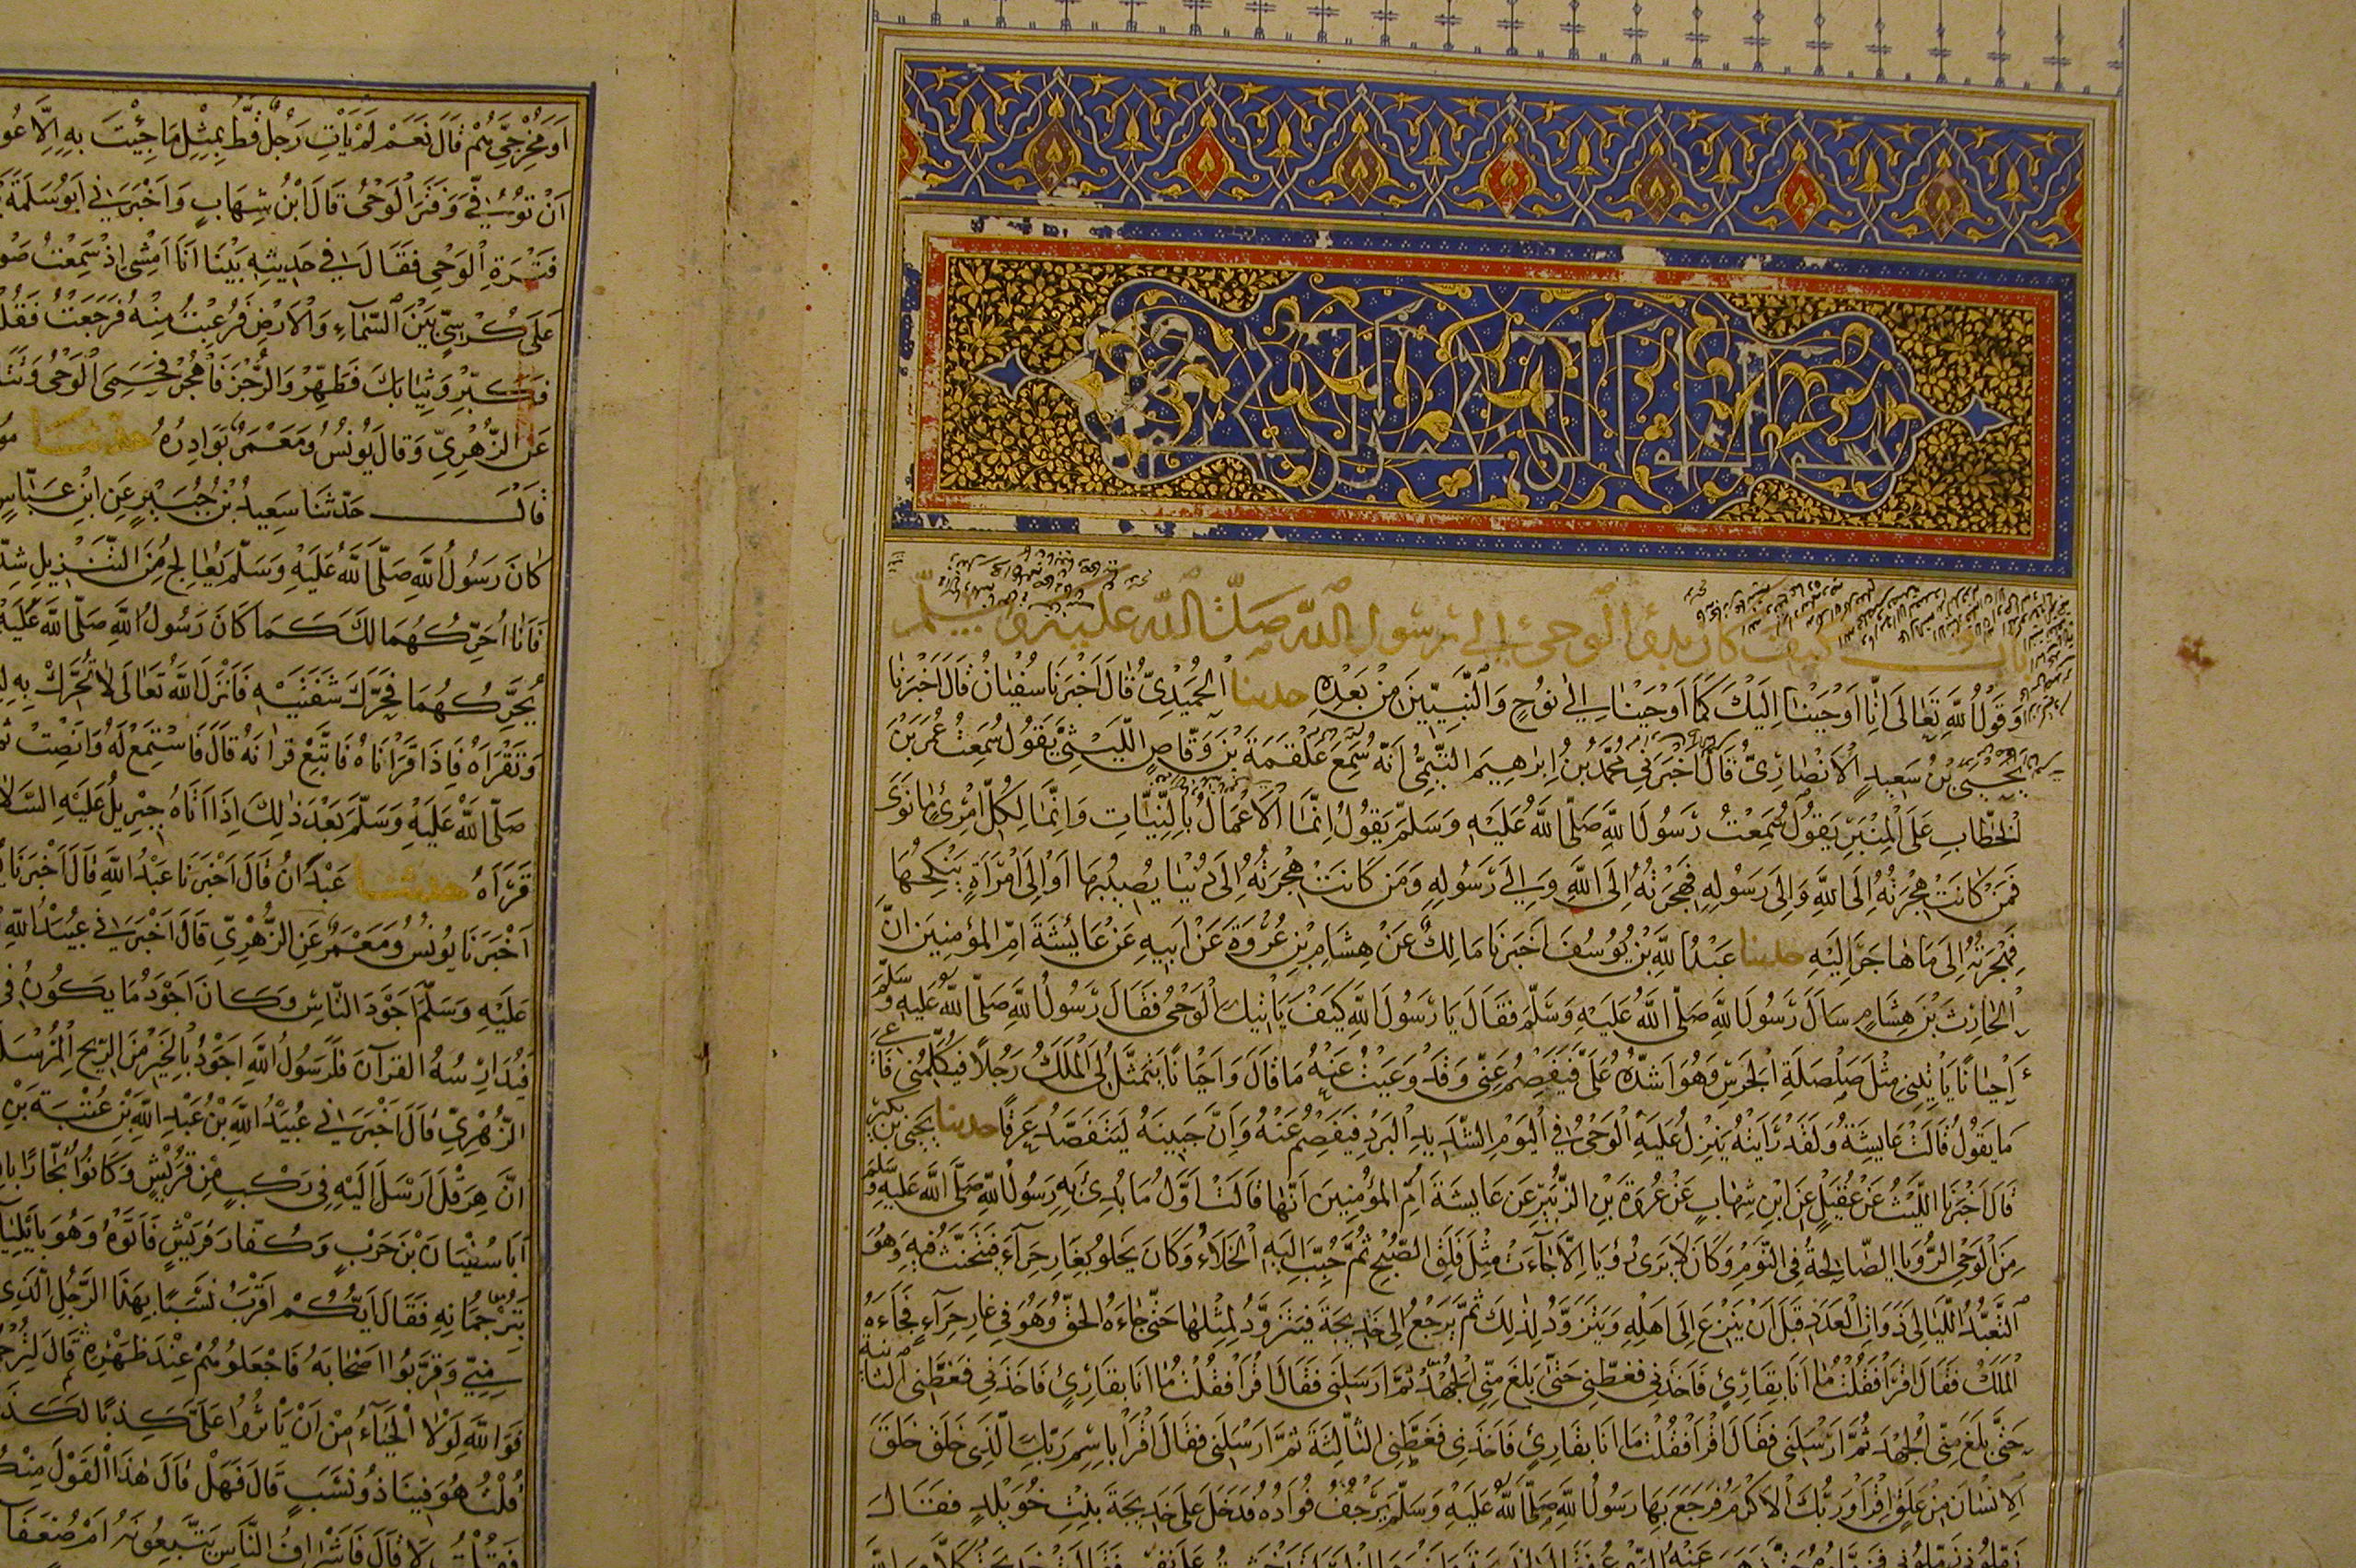 بسم الله الرحمن الرحيم
باب كيف كان بدؤ الوحي إلى رسول الله صلى الله عليه وسلم
وَقَوْلُ اللهِ تَعَالَى اِنَّا اَوْحَيْنَا اِلَيْكَ كَمَا اَوْحَيْنَا اِلَى نُوحٍ وَالنَّبِيِّينَ مِنْ بَعْدِهِ حدثنا الْحُمَيْدِيُّ قَالَ اَخْبَرَنَا سُفْيَانُ قَالَ اَخْبَرَنَا
يَحْيَى بْنُ سَعِيدٍ الْاَنْصَارِيُّ قَالَ اَخْبَرَنِي مُحَمَّدُ بْنُ اِبْرٰهِيمَ التَّيْمِيُّ اَنَّهُ سَمِعَ عَلْقَمَةَ بْنَ وَقَّاصٍ اللَّيْثِيَّ يَقُولُ سَمِعْتُ عُمَرَ بْنَ
الْخَطَّابِ عَلَى الْمِنْبَرِ يَقُولُ سَمِعْتُ رَسُولَ اللهِ صَلَّى اللهُ عَلَيْهِ وَسَلَّمَ يَقُولُ اِنَّمَا الْاَعْمَالُ بِالنِّيَّاتِ وَاِنَّمَا لِكُلِّ امْرِئٍ مَا نَوَى
فَمَنْ كَانَتْ هِجْرَتُهُ اِلَى اللهِ وَاِلَى رَسُولِهِ فَهِجْرَتُهُ اِلَى اللهِ وَاِلَى رَسُولِهِ وَمَنْ كَانَتْ هِجْرَتُهُ اِلَى دُنْيَا يُصِيبُهَا اَوْ اِلَى امْرَاَةٍ يَنْكِحُهَا
فَهِجْرَتُهُ اِلَى مَا هَاجَرَ اِلَيْهِ حدثنا عَبْدُ اللهِ بْنُ يُوسُفَ اَخْبَرَنَا مَالِكٌ عَنْ هِشَامِ بْنِ عُرْوَةَ عَنْ اَبِيهِ عَنْ عَايِشَةَ اُمِّ الْمُؤْمِنِينَ اَنَّ
الْحَارِثَ بْنَ هِشَامٍ سَاَلَ رَسُولَ اللهِ صَلَّى اللهُ عَلَيْهِ وَسَلَّمَ فَقَالَ يَا رَسُولَ اللهِ كَيْفَ يَاْتِيكَ الْوَحْيُ فَقَالَ رَسُولُ اللهِ صَلَّى اللهُ عَلَيْهِ وَسَلَّمَ
اَحْيَانًا يَاْتِينِي مِثْلَ صَلْصَلَةِ الْجَرَسِ وَهُوَ اَشَدُّهُ عَلَيَّ فَيَفْصِمُ عَنِّي وَقَدْ وَعَيْتُ عَنْهُ مَا قَالَ وَاَحْيَانًا يَتَمَثَّلُ لِيَ الْمَلَكُ رَجُلًا فَيُكَلِّمُنِي فَاَعِي
مَا يَقُولُ قَالَتْ عَايِشَةُ وَلَقَدْ رَاَيْتُهُ يَنْزِلُ عَلَيْهِ الْوَحْيُ فِي الْيَوْمِ الشَّدِيدِ الْبَرْدِ فَيَفْصِمُ عَنْهُ وَاِنَّ جَبِينَهُ لَيَتَفَصَّدُ عَرَقًا حدثنا يَحْيَى بْنُ بُكَيْرٍ
قَالَ اَخْبَرَنَا اللَّيْثُ عَنْ عُقَيْلٍ عَنِ ابْنِ شِهَابٍ عَنْ عُرْوَةَ بْنِ الزُّبَيْرِ عَنْ عَايِشَةَ اُمِّ الْمُؤْمِنِينَ اَنَّهَا قَالَتْ اَوَّلُ مَا بُدِئَ بِهِ رَسُولُ اللهِ صَلَّى اللهُ عَلَيْهِ وَسَلَّمَ
مِنَ الْوَحْيِ الرُّؤْيَا الصَّالِحَةُ فِي النَّوْمِ وَكَانَ لَا يَرَى رُؤْيَا اِلَّا جَاءَتْ مِثْلَ فَلَقِ الصُّبْحِ ثُمَّ حُبِّبَ اِلَيْهِ الْخَلَاءُ وَكَانَ يَخْلُو بِغَارِ حِرَاءٍ فَيَتَحَنَّثُ فِيهِ وَهُوَ
التَّعَبُّدُ اللَّيَالِيَ ذَوَاتِ الْعَدَدِ قَبْلَ اَنْ يَنْزِعَ اِلَى اَهْلِهِ وَيَتَزَوَّدُ لِذٰلِكَ ثُمَّ يَرْجِعُ اِلَى خَدِيجَةَ فَيَتَزَوَّدُ لِمِثْلِهَا حَتَّى جَاءَهُ الْحَقُّ وَهُوَ فِي غَارِ حِرَاءٍ فَجَاءَهُ
الْمَلَكُ فَقَالَ اقْرَاْ فَقُلْتُ مَا اَنَا بِقَارِئٍ فَاَخَذَنِي فَغَطَّنِي حَتَّى بَلَغَ مِنِّي الْجُهْدُ ثُمَّ اَرْسَلَنِي فَقَالَ اقْرَاْ فَقُلْتُ مَا اَنَا بِقَارِئٍ فَاَخَذَنِي فَغَطَّنِي الثَّانِيَةَ
حَتَّى بَلَغَ مِنِّي الْجُهْدُ ثُمَّ اَرْسَلَنِي فَقَالَ اقْرَاْ فَقُلْتُ مَا اَنَا بِقَارِئٍ فَاَخَذَنِي فَغَطَّنِي الثَّالِثَةَ ثُمَّ اَرْسَلَنِي فَقَالَ اقْرَاْ بِاسْمِ رَبِّكَ الَّذِي خَلَقَ خَلَقَ
الْاِنْسَانَ مِنْ عَلَقٍ اقْرَاْ وَرَبُّكَ الْاَكْرَمُ فَرَجَعَ بِهَا رَسُولُ اللهِ صَلَّى اللهُ عَلَيْهِ وَسَلَّمَ يَرْجُفُ فُوَادُهُ فَدَخَلَ عَلَى خَدِيجَةَ بِنْتِ خُوَيْلِدٍ فَقَالَ
زَمِّلُونِي زَمِّلُونِي
اَوَمُخْرِجِيَّ هُمْ قَالَ نَعَمْ لَمْ يَاْتِ رَجُلٌ قَطُّ بِمِثْلِ مَا جِئْتَ بِهِ اِلَّا
اَنْ تُوُفِّيَ وَفَتَرَ الْوَحْيُ قَالَ ابْنُ شِهَابٍ وَاَخْبَرَنِي اَبُو سَلَمَةَ
فَتْرَةِ الْوَحْيِ فَقَالَ فِي حَدِيثِهِ بَيْنَا اَنَا اَمْشِي اِذْ سَمِعْتُ
عَلَى كُرْسِيٍّ بَيْنَ السَّمَاءِ وَالْاَرْضِ فَرُعِبْتُ مِنْهُ فَرَجَعْتُ
فَكَبِّرْ وَثِيَابَكَ فَطَهِّرْ وَالرُّجْزَ فَاهْجُرْ فَحَمِيَ الْوَحْيُ
عَنِ الزُّهْرِيِّ وَقَالَ يُونُسُ وَمَعْمَرٌ بَوَادِرُهُ حدثنا
قَالَ حَدَّثَنَا سَعِيدُ بْنُ جُبَيْرٍ عَنِ ابْنِ عَبَّاسٍ
كَانَ رَسُولُ اللهِ صَلَّى اللهُ عَلَيْهِ وَسَلَّمَ يُعَالِجُ مِنَ التَّنْزِيلِ
فَاَنَا اُحَرِّكُهُمَا لَكَ كَمَا كَانَ رَسُولُ اللهِ صَلَّى اللهُ عَلَيْهِ
يُحَرِّكُهُمَا فَحَرَّكَ شَفَتَيْهِ فَاَنْزَلَ اللهُ تَعَالَى لَا تُحَرِّكْ بِهِ
وَتَقْرَاَهُ فَاِذَا قَرَاْنَاهُ فَاتَّبِعْ قُرْاٰنَهُ قَالَ فَاسْتَمِعْ لَهُ وَاَنْصِتْ
صَلَّى اللهُ عَلَيْهِ وَسَلَّمَ بَعْدَ ذٰلِكَ اِذَا اَتَاهُ جِبْرِيلُ عَلَيْهِ السَّلَامُ
قَرَاَهُ حدثنا عَبْدَانُ قَالَ اَخْبَرَنَا عَبْدُ اللهِ قَالَ اَخْبَرَنَا
اَخْبَرَنَا يُونُسُ وَمَعْمَرٌ عَنِ الزُّهْرِيِّ قَالَ اَخْبَرَنِي عُبَيْدُ اللهِ
عَلَيْهِ وَسَلَّمَ اَجْوَدَ النَّاسِ وَكَانَ اَجْوَدُ مَا يَكُونُ فِي
فَيُدَارِسُهُ الْقُرْآنَ فَلَرَسُولُ اللهِ اَجْوَدُ بِالْخَيْرِ مِنَ الرِّيحِ الْمُرْسَلَةِ
الزُّهْرِيِّ قَالَ اَخْبَرَنِي عُبَيْدُ اللهِ بْنُ عَبْدِ اللهِ بْنِ عُتْبَةَ بْنِ
اَنَّ هِرَقْلَ اَرْسَلَ اِلَيْهِ فِي رَكْبٍ مِنْ قُرَيْشٍ وَكَانُوا تُجَّارًا
اَبَا سُفْيَانَ بْنَ حَرْبٍ وَكُفَّارَ قُرَيْشٍ فَاَتَوْهُ وَهُوَ بِاِيلِيَاءَ
بِتَرْجُمَانِهِ فَقَالَ اَيُّكُمْ اَقْرَبُ نَسَبًا بِهَذَا الرَّجُلِ الَّذِي
مِنِّي وَقَرِّبُوا اَصْحَابَهُ فَاجْعَلُوهُمْ عِنْدَ ظَهْرِهِ ثُمَّ قَالَ
فَوَاللهِ لَوْلَا الْحَيَاءُ مِنْ اَنْ يَاْثِرُوا عَلَيَّ كَذِبًا لَكَذَبْتُ
قُلْتُ هُوَ فِينَا ذُو نَسَبٍ قَالَ فَهَلْ قَالَ هٰذَا الْقَوْلَ
فَقُلْتُ لَا قَالَ فَاَشْرَافُ النَّاسِ يَتَّبِعُونَهُ اَمْ ضُعَفَاؤُهُمْ